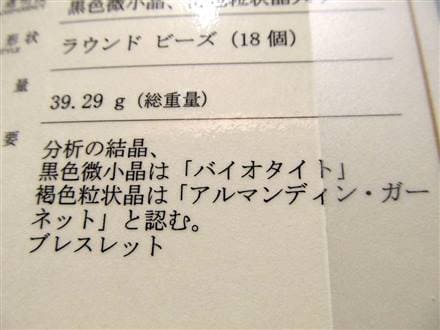 黒色微小晶、褐色粒状晶入り
形状 ラウンド ビーズ (18個)
量 39.29 g (総重量)
要 分析の結晶、
黒色微小晶は「バイオタイト」
褐色粒状晶は「アルマンディン・ガー
ネット」と認む。
ブレスレット